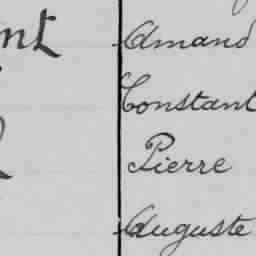 nt Amand
Constant
Pierre
Auguste